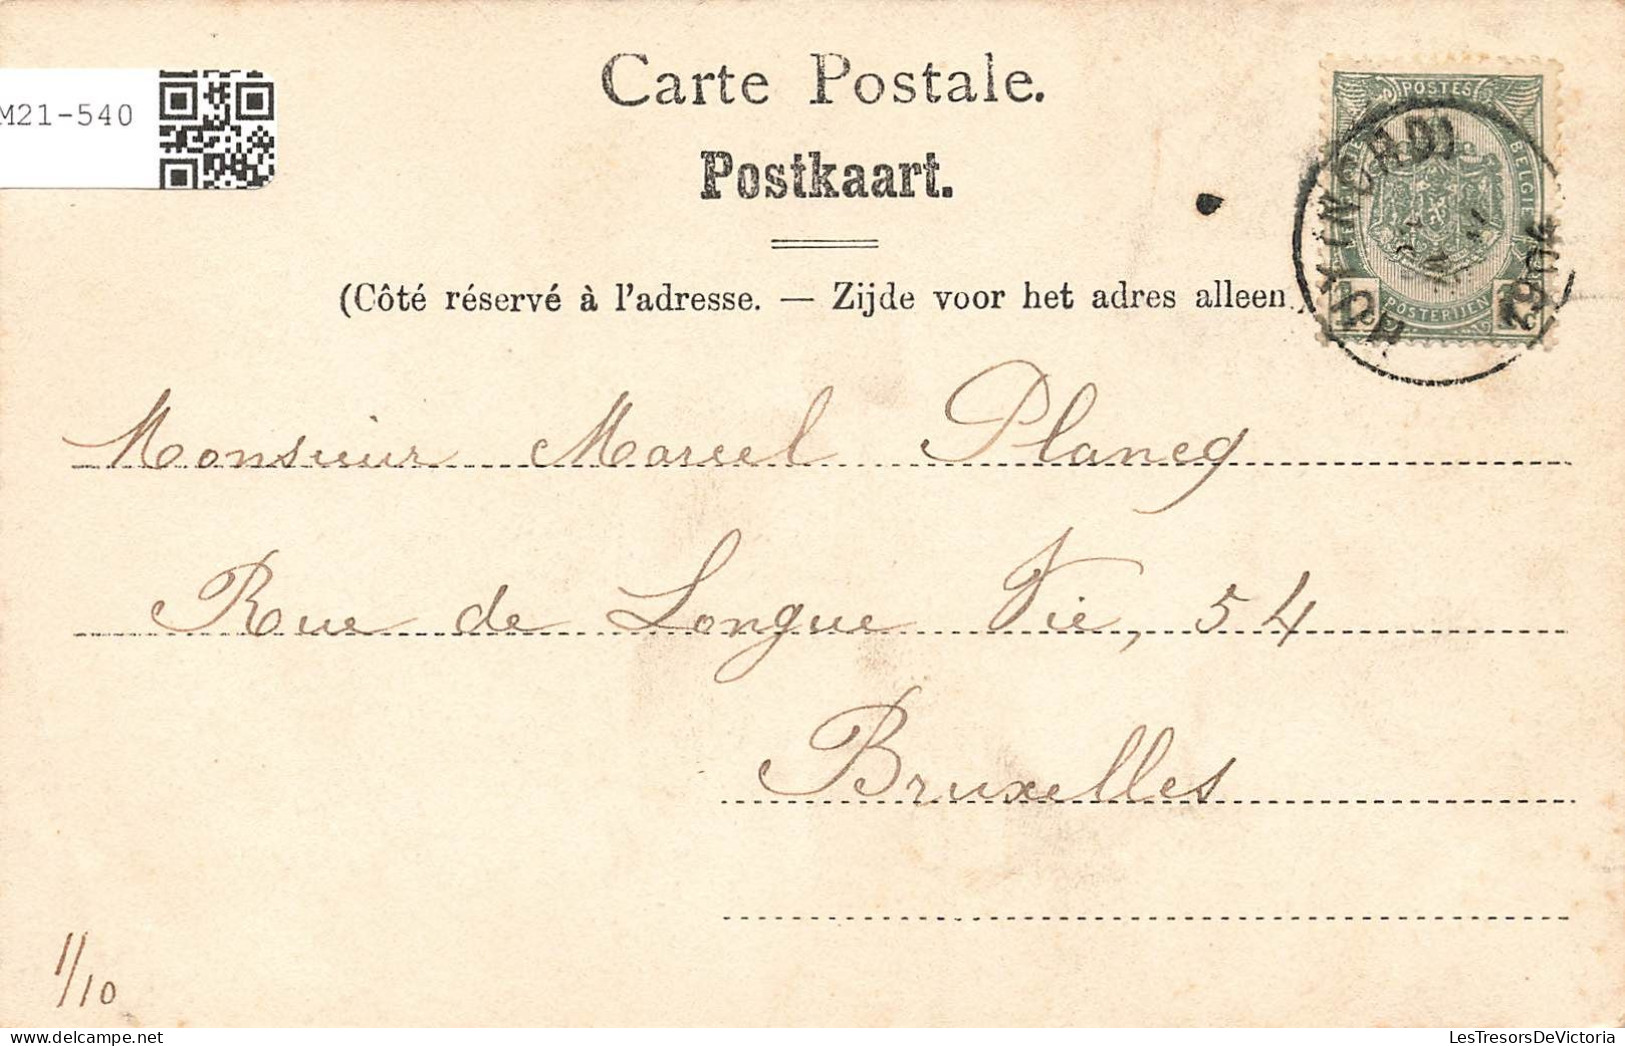 M21-540
Carte Postale.
Postkaart.
(Côté réservé à l'adresse. — Zijde voor het adres alleen
POSTES
BELGIE
POSTERIJEN
1904
Monsieur Marcel Plancq
Rue de Longue Vie, 54
Bruxelles
1/10
LesTresorsDeVictoria